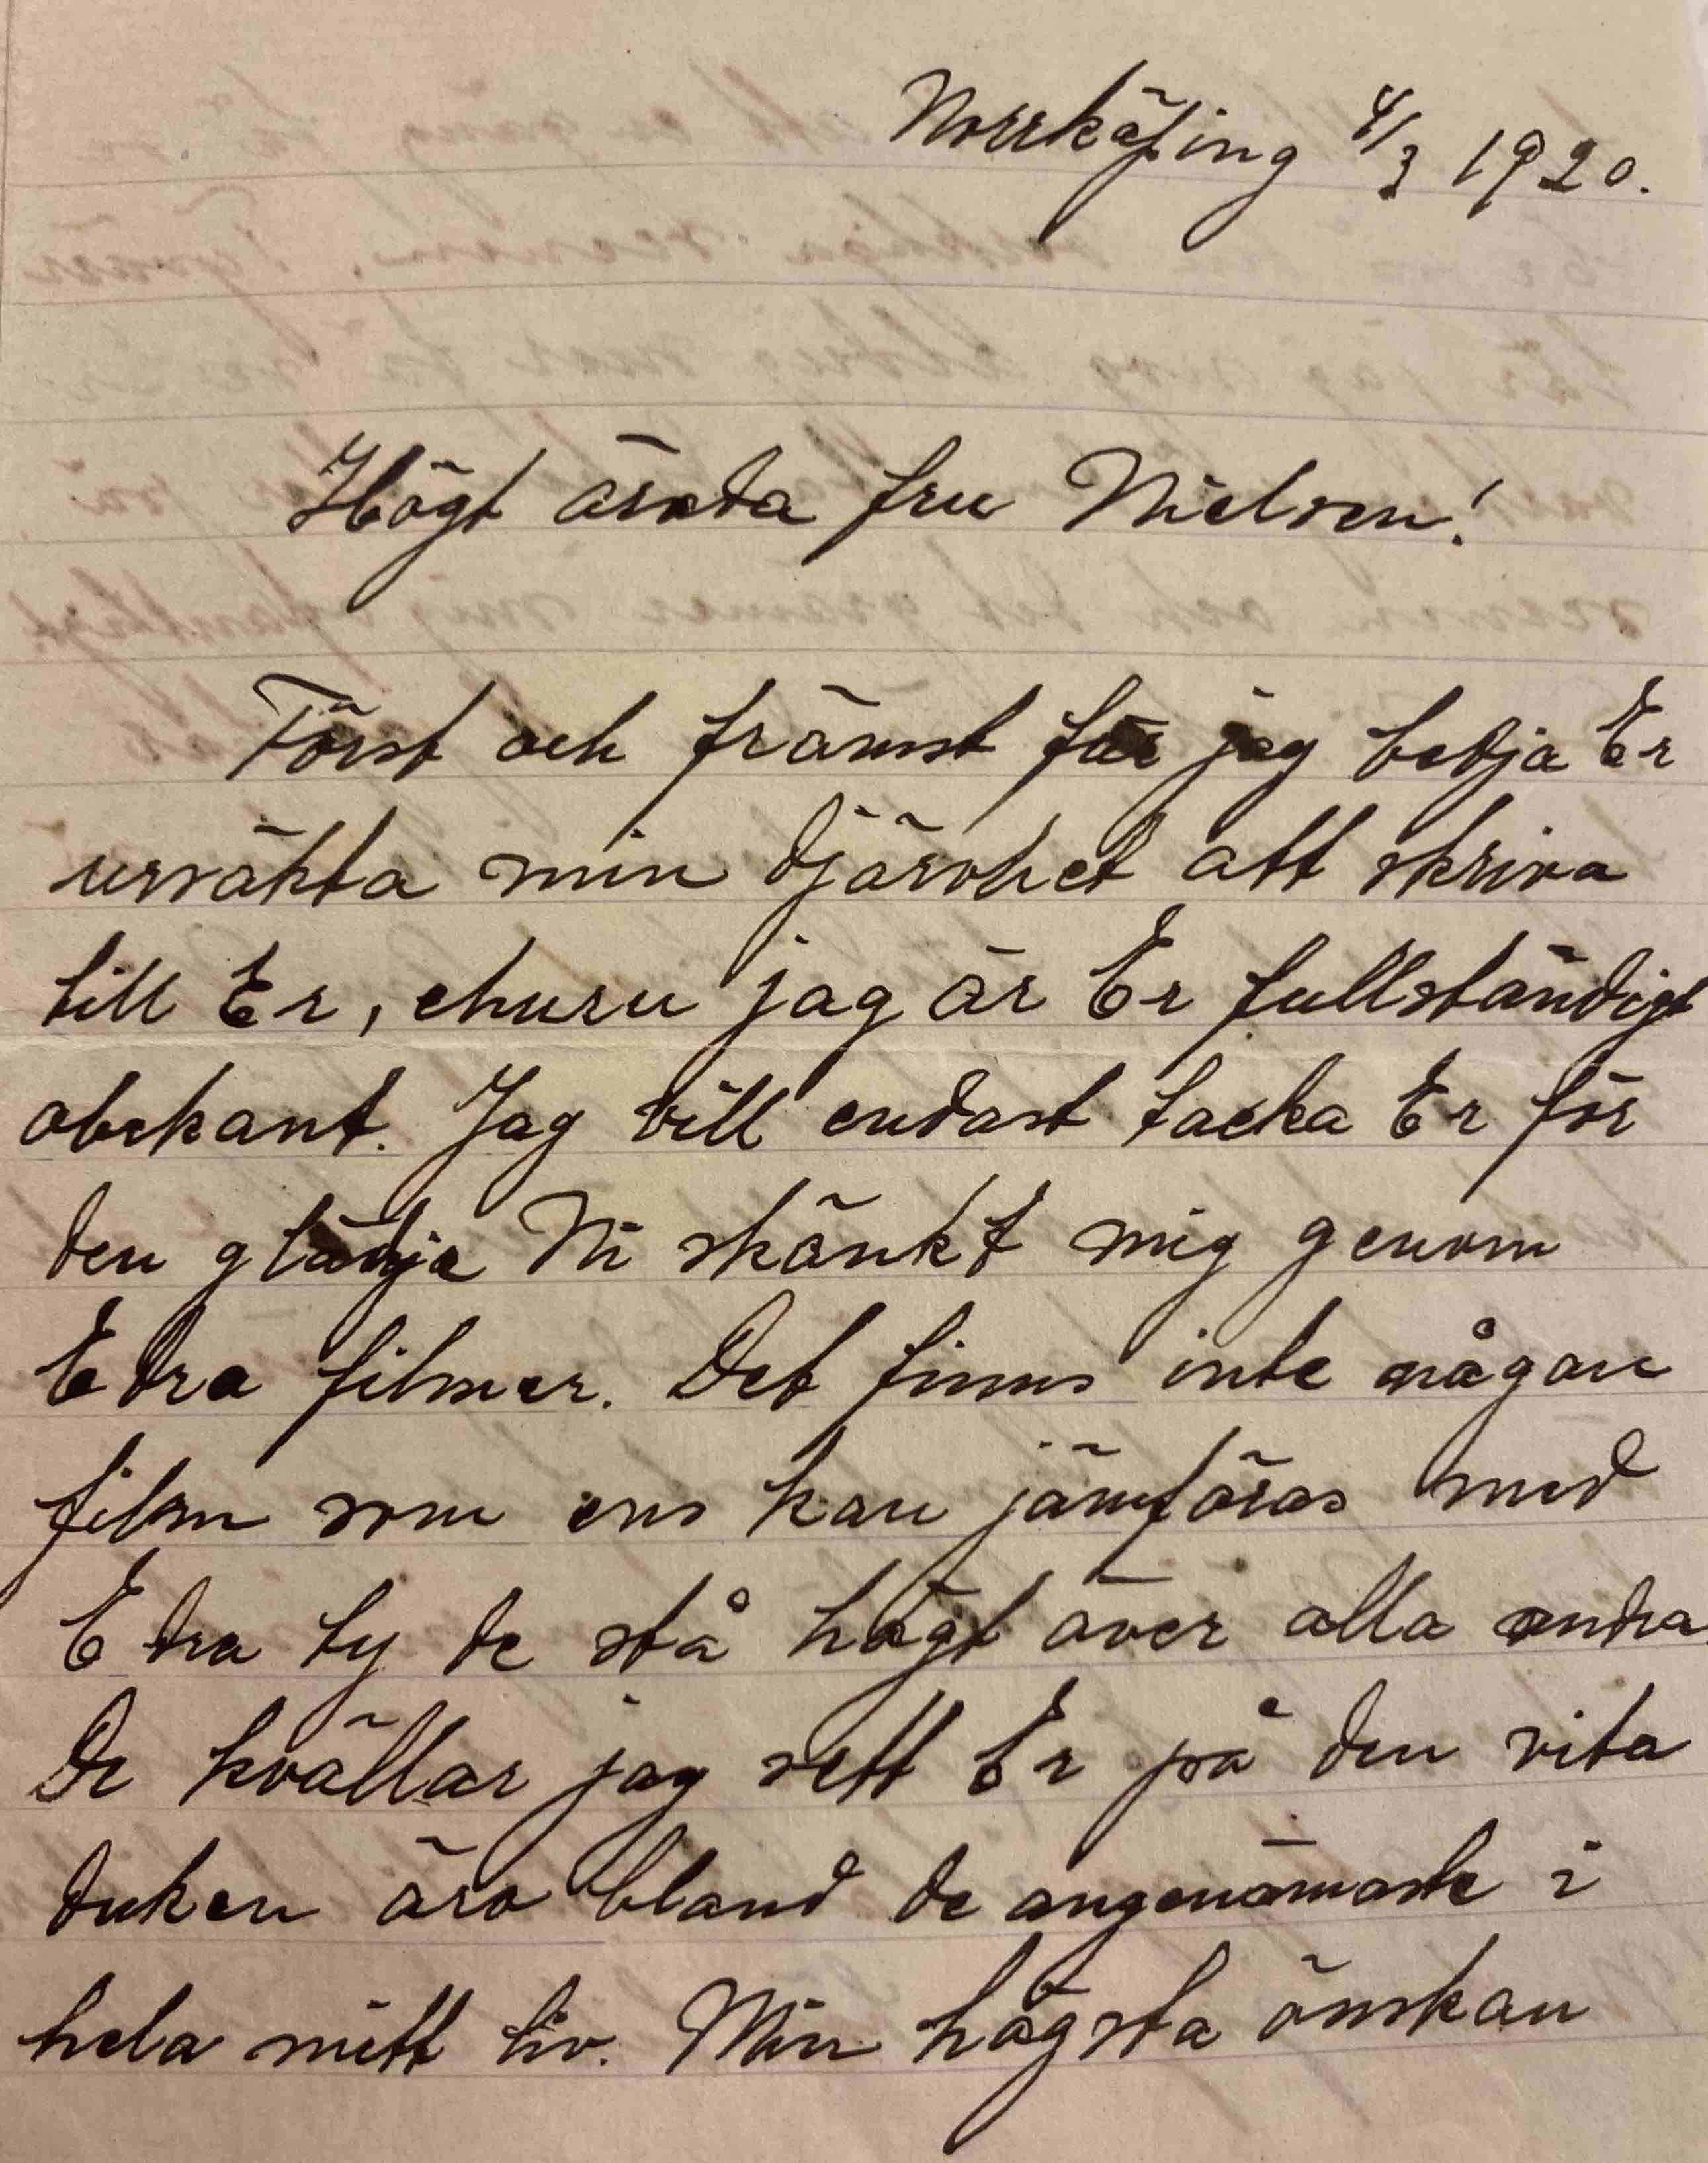 Norrköping 4/3 1920.
Högt ärada fru Nielsen!
Först och främst får jag bedja Er
ursäkta min djärvhet att skriva
till Er, ehuru jag är Er fullständigt
obekant. Jag vill endast tacka Er för
den glädje Ni skänkt mig genom
Edra filmer. Det finns inte någon
film som ens kan jämföras med
Edra ty de stå högt över alla andra.
De kvällar jag sett Er på den vita
duken äro bland de angenämaste i
hela mitt liv. Min högsta önskan